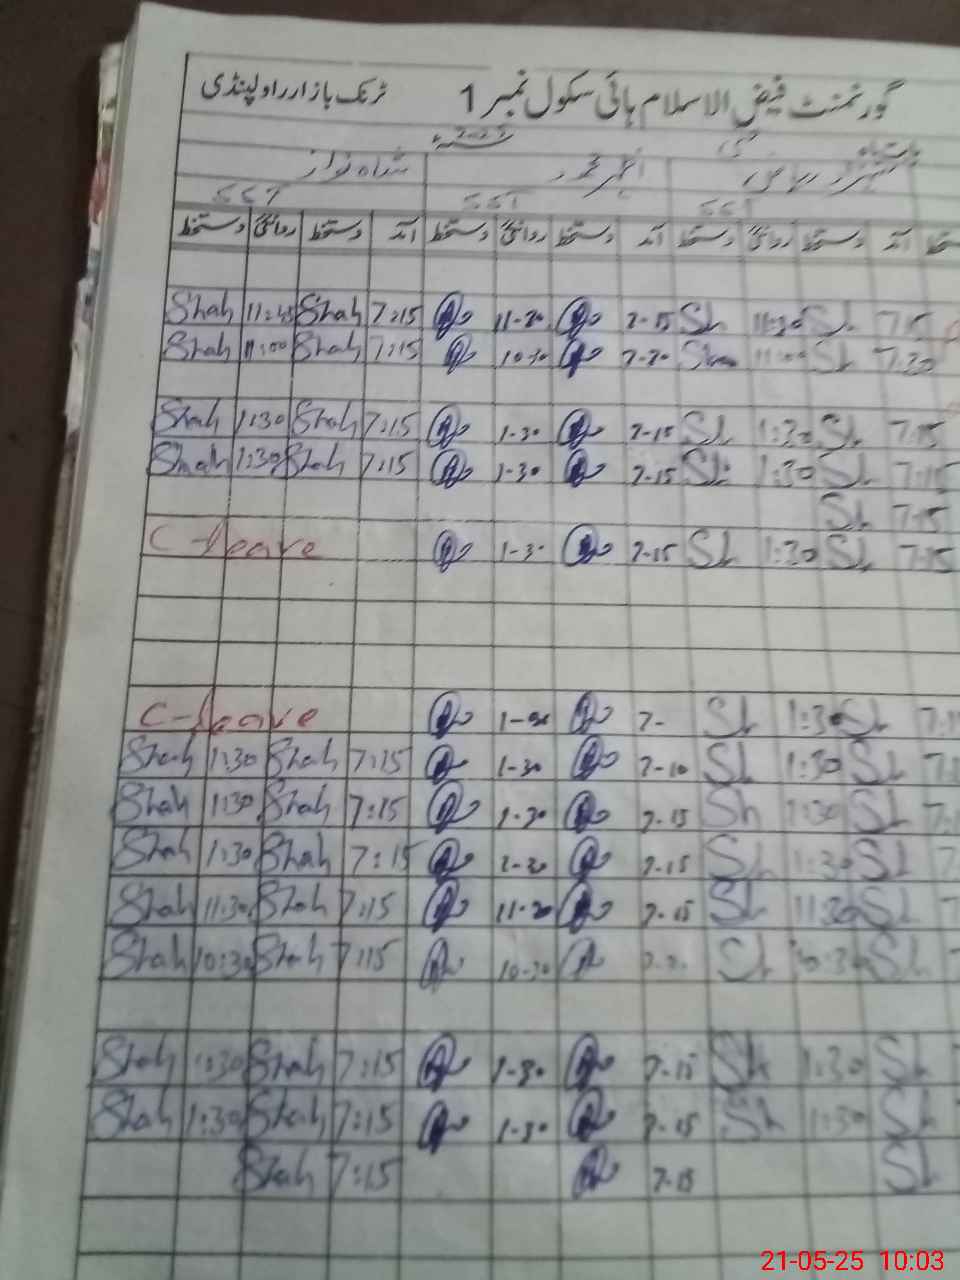 گورنمنٹ فیض الاسلام ہائی سکول نمبر 1 ٹرنک بازار راولپنڈی
بابت ماہ مئی
شاہ نواز
SST SST
آمد دستخط روانگی دستخط آمد دستخط روانگی دستخط آمد دستخط روانگی دستخط
Shah 11:45 Shah 7:15 11-30 7-15 Sh 11:30 Sh 7:15
Shah 11:00 Shah 7:15 10-30 7-30 Sh 11:00 Sh 7:30
Shah 1:30 Shah 7:15 1-30 7-15 Sh 1:30 Sh 7:15
Shah 1:30 Shah 7:15 1-30 7-15 Sh 1:30 Sh 7:15
Sh 7:15
C-leave 1-30 7-15 Sh 1:30 Sh 7:15
C-leave 1-30 7- Sh 1:30 Sh
Shah 1:30 Shah 7:15 1-30 7-10 Sh 1:30 Sh
Shah 1:30 Shah 7:15 1-30 7-15 Sh 1:30 Sh
Shah 1:30 Shah 7:15 7-15 Sh 1:30 Sh
Shah 11:30 Shah 7:15 11-30 7-15 Sh 11:30 Sh
Shah 10:30 Shah 7:15 10-30 Sh 10:30 Sh
Shah 1:30 Shah 7:15 1-30 7-15 Sh 1:30 Sh
Shah 1:30 Shah 7:15 1-30 7-15 Sh 1:30 Sh
Shah 7:15 7-15 Sh
21-05-25 10:03